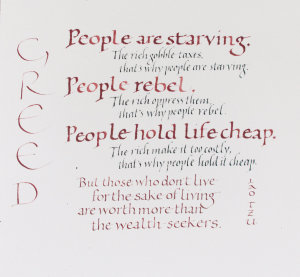 GREED
People are starving.
The rich gobble taxes,
that's why people are starving.
People rebel.
The rich oppress them,
that's why people rebel.
People hold life cheap.
The rich make it too costly,
that's why people hold it cheap.
But those who don't live
for the sake of living
are worth more than
the wealth-seekers.
LAO TZU